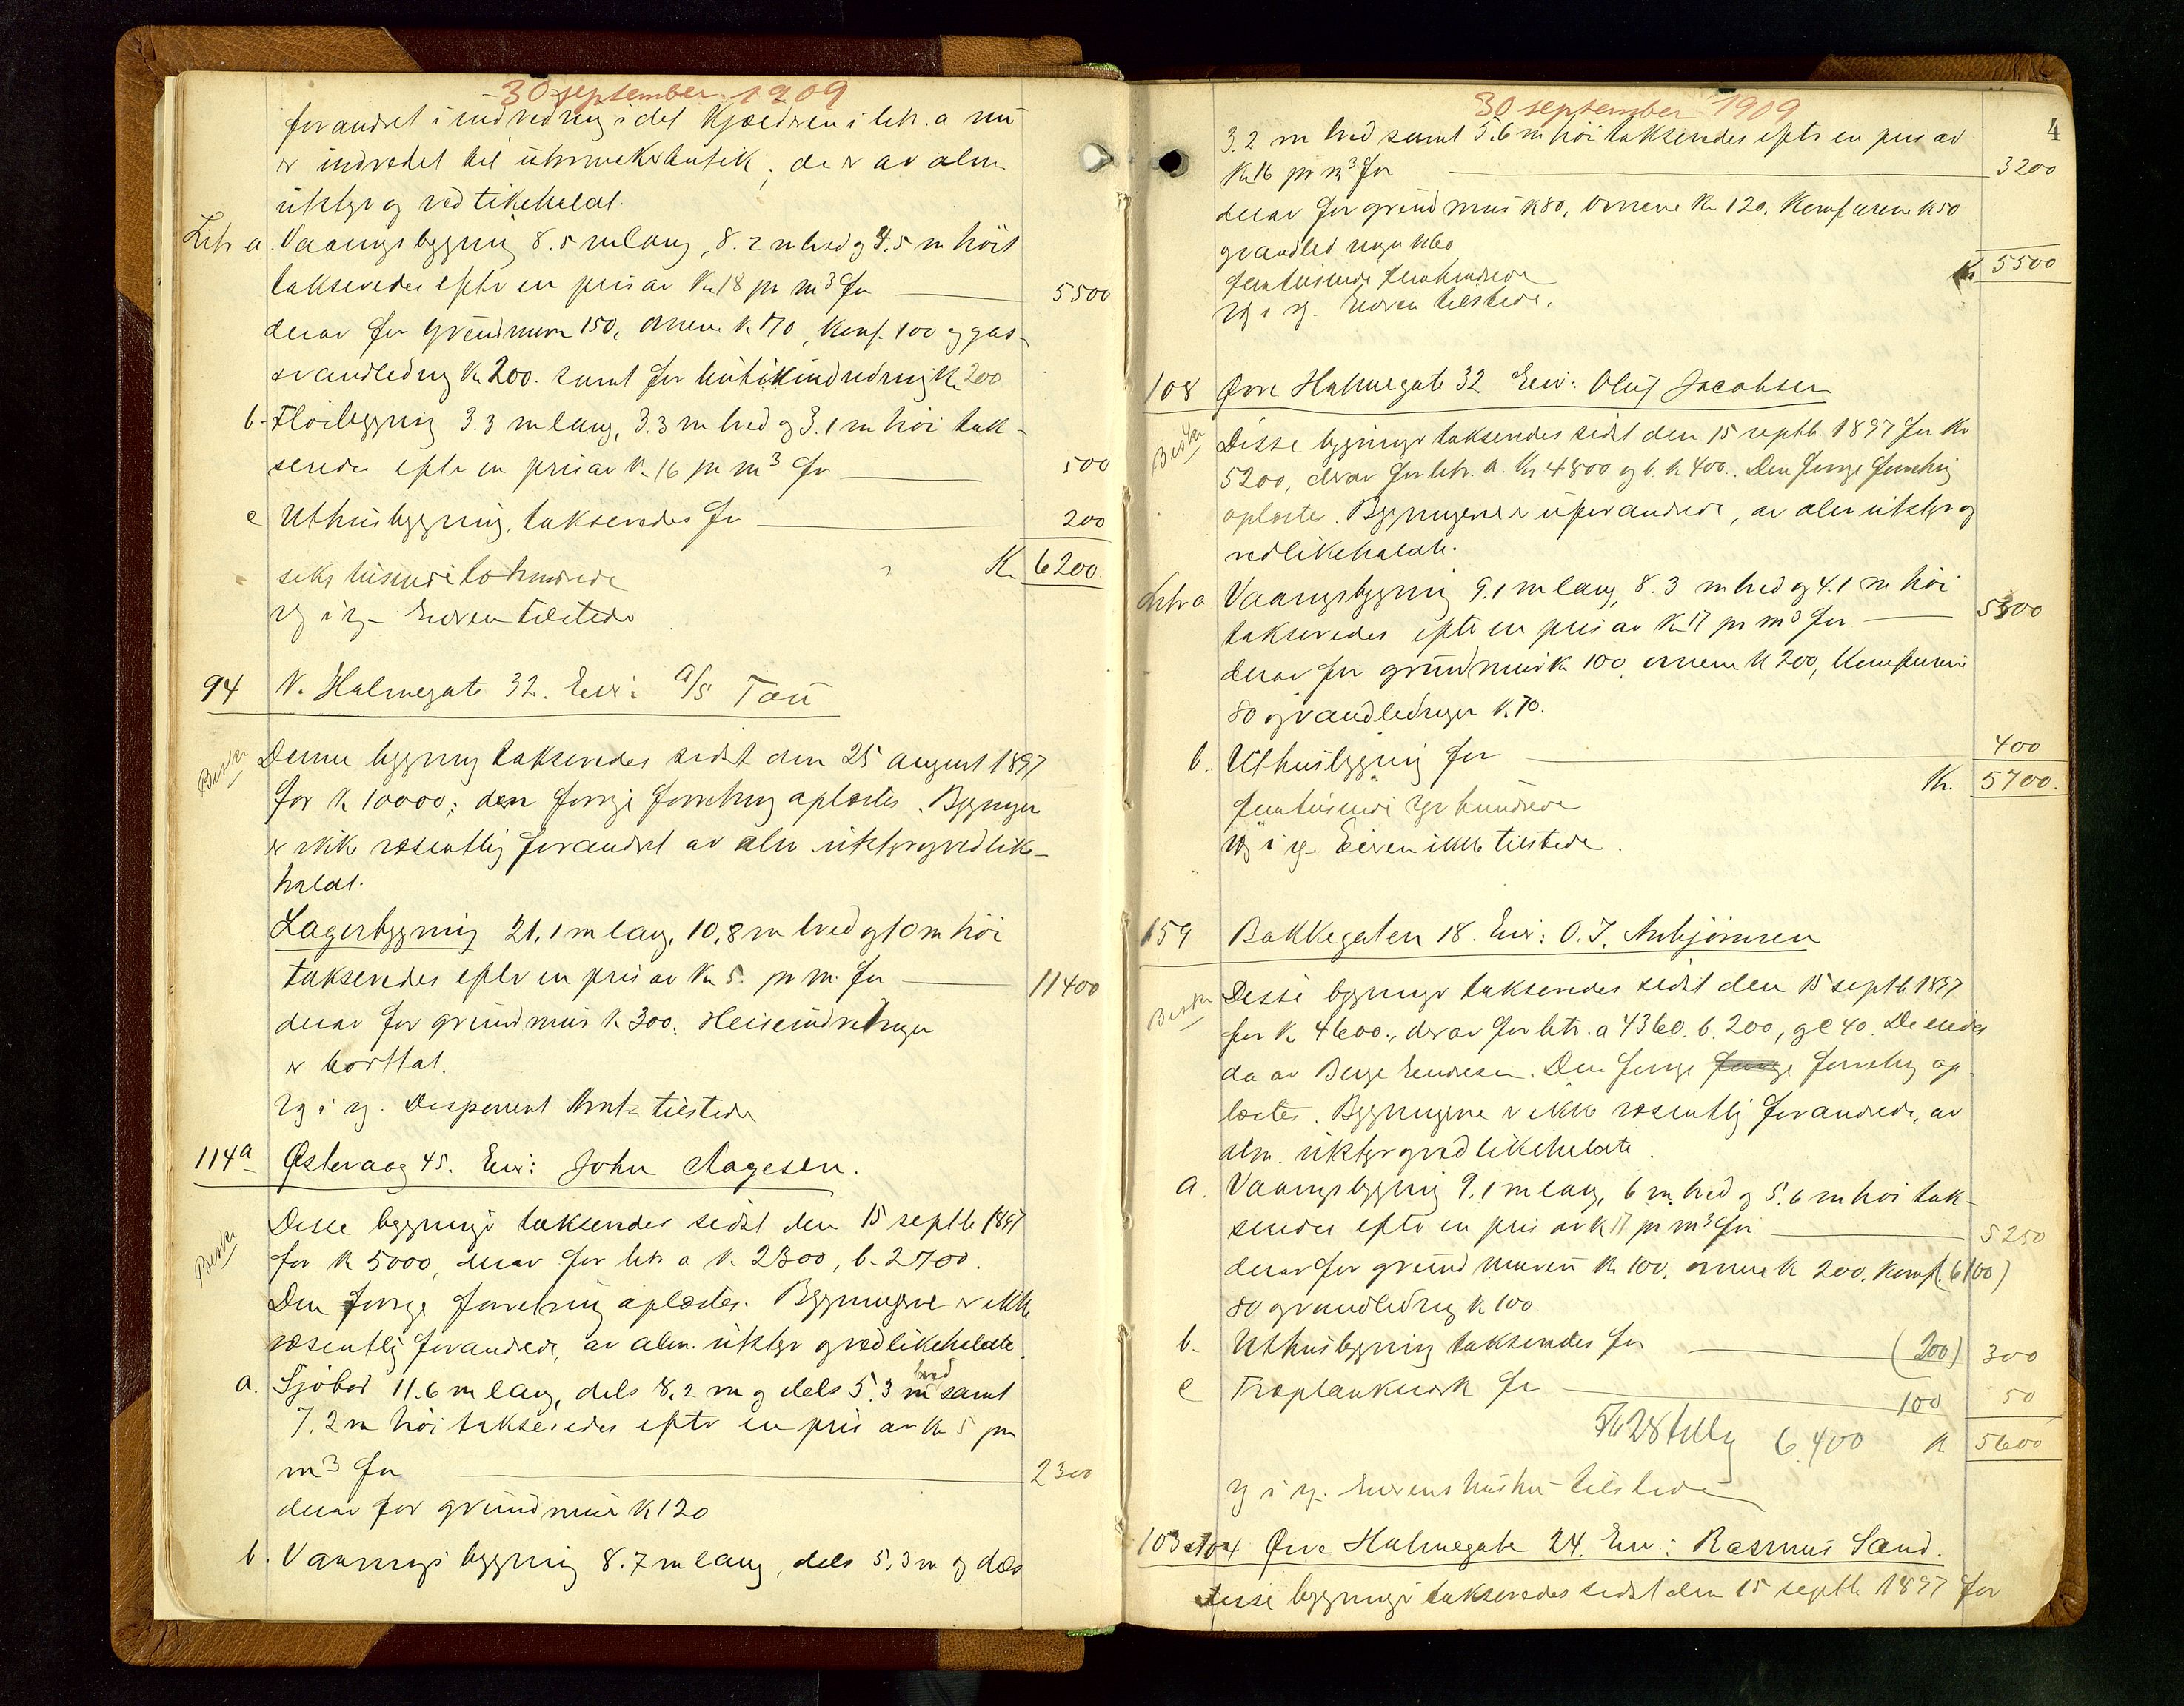 30 september 1909
forandret i indredning idet Kjælderen i litr. a nu
er indredet til urmakerbutik; de er av alm.
utstyr og vedlikeholdt.
Litr a. Vaaningsbygning 8.5 m lang, 8.2 m bred og 4.5 m höit
takseredes efter en pris av Kr 18 pr m³ for 5500
derav for grundmuren 150, ovnene Kr 170, Komf. 100 og gas-
vandledning Kr 200. samt for butikindredning Kr 200
b. Flöibygning 3.3 m lang, 3.3 m bred og 3.1 m höi tak-
seredes efter en pris av Kr 16 pr m³ for 500
c Uthusbygning, takseredes for 200
Kr. 6200.
seks tusende to hundrede
rg i rg. Eieren tilstede
94 N. Holmegate 32. Eier: A/S Tou
Beskr. Denne bygning takseredes sidst den 25 august 1897
for Kr 10000; den forrige forretning oplæstes. Bygningen
er ikke væsentlig forandret av alm. utstyr og vedlike-
holdt.
Lagerbygning 21,1 m lang, 10,8 m bred og 10 m höi
takseredes efter en pris av Kr 5. pr m. for 11400
derav for grundmur Kr 300. Heiseindretningen
er borttat.
rg i rg. Disponent tilstede
114a Østervaag 45. Eier: John Aagesen.
Beskr. Disse bygninger takseredes sidst den 15 septb 1897
for Kr 5000, derav for litr a Kr. 2300, b. 2700.
Den forrige forretning oplæstes. Bygningerne er ikke
væsentlig forandrede, av alm. utstyr og vedlikeholdte
a. Sjöbod 11.6 m lang, dels 8,2 m og dels 5.3 m bred samt
7.2 m höi takseredes efter en pris av Kr 5 pr
m³ for 2300
derav for grundmur Kr 120
b. Vaanings bygning 8.7 m lang, dels 5,3 m og dels
30 september 1909
4
3.2 m bred samt 5.6 m höi takseredes efter en pris av
Kr 16 pr m³ for 3200
derav for grundmur Kr 80, ovnene Kr 120, Komfurene Kr 50
og vandledningen Kr 60
Kr 5500
femtusinde femhundrede
rg i rg. Eieren tilstede.
108 Øvre Holmegate 32 Eier: Oluf Jacobsen
Beskr. Disse bygninger takseredes sidst den 15 septb. 1897 for Kr
5200, derav for litr. a. Kr 4800 og b. Kr 400. Den forrige forretning
oplæstes. Bygningerne er uforandrede, av alm utstyr og
vedlikeholdt.
Litr a Vaaningsbygning 9.1 m lang, 8.3 m bred og 4.1 m höi
takseredes efter en pris av Kr 17 pr m³ for 5300
derav for grundmur Kr 100, ovnene Kr 200, Komfurene
80 og vandledningen Kr 70.
b. Uthusbygning for 400
Kr. 5700.
femtusinde syv hundrede
rg i rg. Eieren ikke tilstede.
159 Bakkegaten 18. Eier: O. T. Anbjörnsen
Beskr. Disse bygninger takseredes sidst den 15 septb 1897
for Kr 4600., derav for litr. a 4360. b. 200, og c 40. De eiedes
da av Berge Endresen. Den forrige forrige forretning op-
læstes. Bygningerne er ikke væsentlig forandrede, av
alm. utstyr og vedlikeholdte.
a. Vaaningsbygning 9.1 m lang, 6 m bred og 5.6 m höi tak-
seredes efter en pris av Kr 17 pr m³ for 5250
derav for grundmuren Kr 100, ovnene Kr 200, Komf. (6100)
80 og vandledning Kr 100
b. Uthusbygning takseredes for (200) 300
c Træplankeverk for 100 50
6400 Kr 5600
rg i rg. Eierens hustru tilstede
103 a 104 Øvre Holmegate 24. Eier: Rasmus Sand.
Disse bygninger takseredes sidst den 15 septb 1897 for